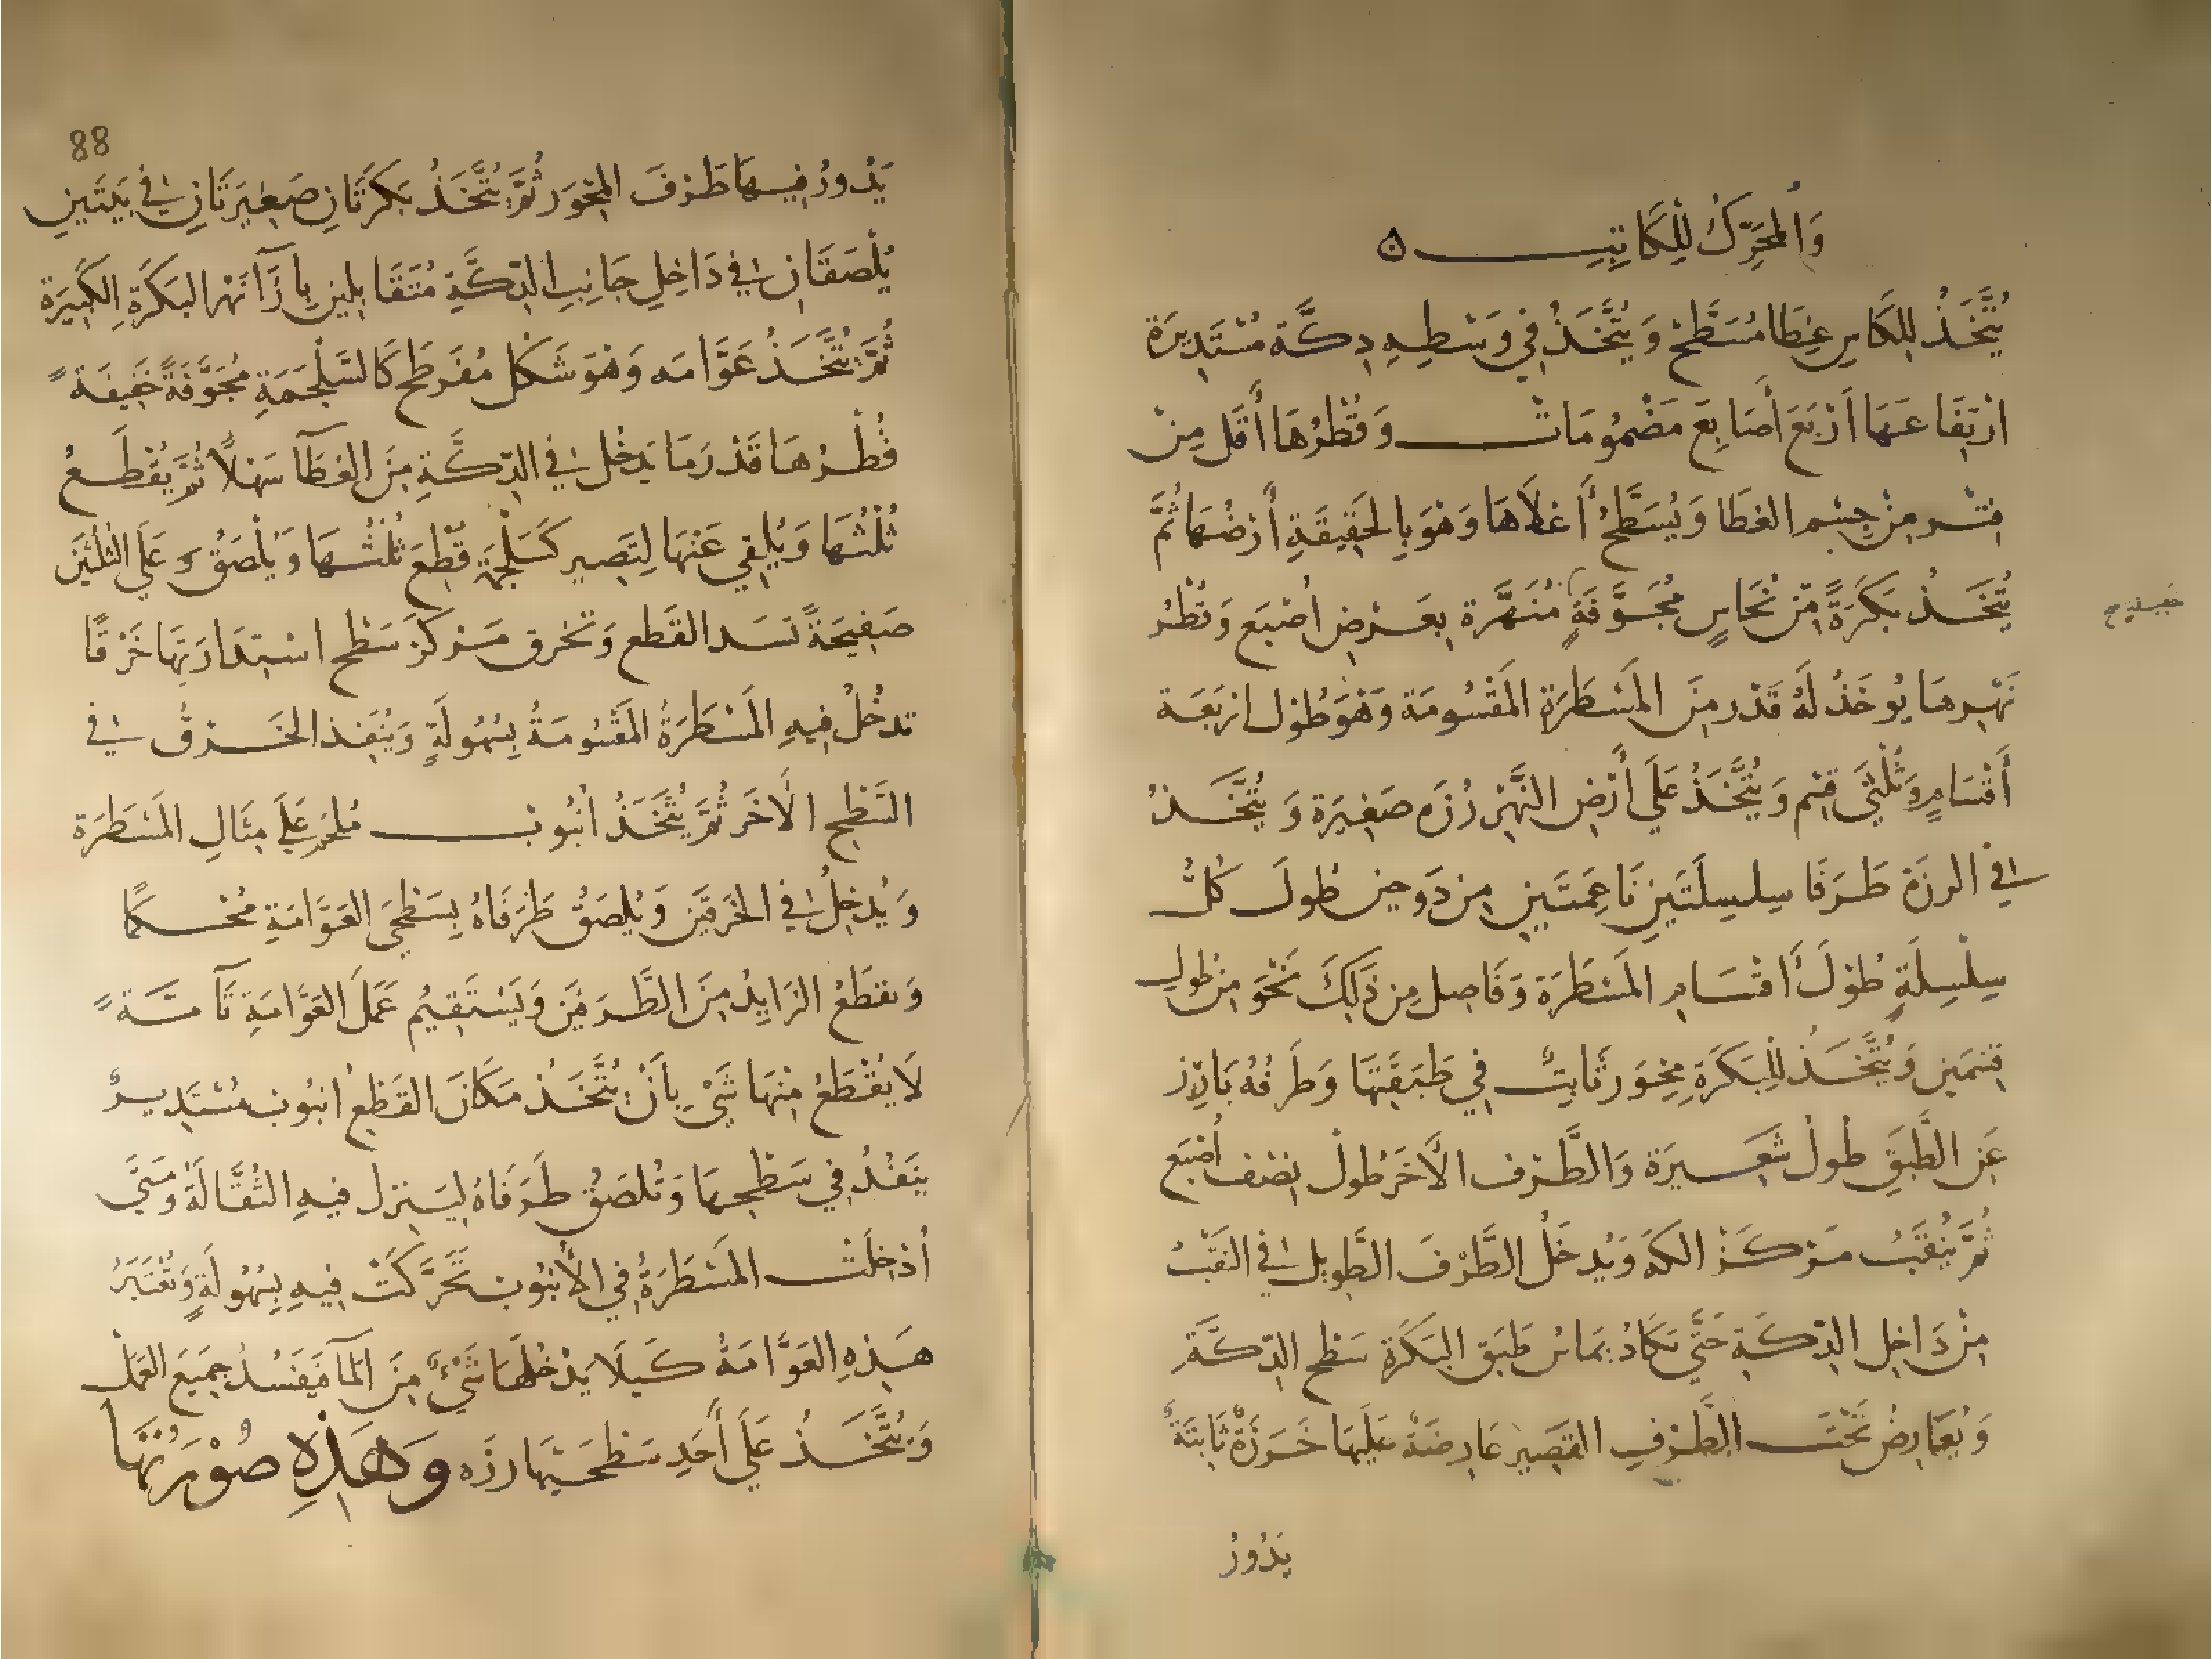 وَالمُحَرِّكُ لِلْكَاتِبِ ۝
يُتَّخَذُ لِلكَاسِ غِطَا مُسَطَّحْ وَيُتَّخَذُ فِي وَسْطِهِ دِكَّة مُسْتَدِيرَة
ارْتِفَاعُهَا اَرْبَعَ أَصَابِعَ مَضْمُومَاتْ وَقُطْرُهَا أَقَل مِنْ
فِتْر مِنْ جِسْم الغطَا وَيُسَطَّحُ أَعْلاَهَا وَهْوَ بِالحَقِيقَةِ أَرْضُهَا ثُمَّ
يُتَّخَذُ بَكَرَةً مِّنْ نُحَاسٍ مُجَوَّفَةٍ مُنَهَّرَة بِعَرْضِ أُصْبَع وَقُطْرُ
نَهْرِهَا يُوخَذُ لَهُ قَدْر مِنَ المَسْطَرَةِ المَقْسُومَة وَهْوَ طُوْل ارْبَعَة
أَقْسَامٍ وَثُلْثَيْ قِسْم وَيُتَّخَذُ عَلَى أَرْضِ النَّهْرْ رُزَّه صَغِيْرَة وَيُتَّخَذُ
فِي الرزَة طَرَفَا سِلسِلَتَيْنِ نَاعِمَتَيْنِ مِن دَوحين طُولَ كُلّ
سِلْسِلَةٍ طُوْلَ أَقْسَامِ المَسْطَرَة وَفَاصِل مِن ذَلِكَ نَحْوَ مِن طُولِ
قِسْمَين وَيُتَّخَذُ لِلْبَكَرَةِ مِحْوَر ثَابِتٌ فِي طَبَقَتِهَا وَطَرَفُهُ بَارِز
عَن الطَّبَقِ طُولُ شَعِيرَة وَالطَّرْف الآَخَرْ طُولُ نِصْف أُصْبَع
ثُمَّ يُنْقَبُ مَرْكَز الكمَّ وَيُدخَلُ الطَّرْفَ الطَّوِيل فِي النَقْبُ
مِنْ دَاخِلِ الدِّكَّةِ حَتَّي يَكَادُ يُمَاسُ طَبَق البَكَرَة سَطح الدِّكَّةِ
وَيُعَارِضُ تَحْتَ الطَّرْفِ القَصِيرِ عَارِضَة عَلَيْهَا خَرَزَةٌ ثَابِتَةٌ
يَدُورُ
88
يَدُورُ فِيهَا طَرْفَ المِحْوَر ثُمَّ يُتَّخَذُ بَكَرَتَانِ صَغِيْرَتَانِ فِي بَيْتَينِ
يُلْصَقَانِ فِي دَاخِلِ جَانِبِ الدِّكَّةِ مُتَقَابِلِين بِازَآ نَهْر البَكَرَةِ الكَبِيَرة
ثُمَّ يُتَّخَذُ عَوَّامَه وَهْوَ شَكْل مُفَرطَح كَالسَّلْجَمَةِ مُجَوَّفَةً خَفِيفَةً
قُطْرُهَا قَدْرَ مَا يَدخُل فِي الدِّكَّةِ مِنَ الغِطَآ سَهْلاً ثُمَّ يُقْطَعُ
ثُلْثُهَا وَيُلقِي عَنْهَا لِتَصِير كَسَلْجَمَة قُطِعَ ثُلْثُهَا وَيُلْصَقُ عَلَى الثُلثَيْن
صَفِيحَةً تسَد القَطع وَتخرق مَرْكَز سَطْح اسْتِدَارَتِهَا خَرْقًا
تدخُلُ فِيهِ المَسْطَرَةُ المَقْسُومَةُ بِسُهُولَةٍ وَيُنَفَذ الخَرْقُ فِي
السَّطْحِ الآَخَر ثُمَّ يُتَّخَذُ انْبُوبْ مُلحَم عَلَى مِثَالِ المَسْطَرَة
وَيُدْخَلُ فِي الخَرقَيْن وَيُلصَقُ طَرَفَاهُ بِسَطْحَيْ العَوَّامَةِ مُحْكَمًا
وَيقطَعُ الزَايِدُ مِنَ الطَّرَفَيْن وَيَسْتَقِيْمُ عَمَلَ العَوَّامَةِ تَآمَّةً
لاَ يُقْطَعُ مِنْهَا شَيْ بِأَنْ يُتَّخَذ مَكَانَ القَطْعِ اُنبُوبُ مُسْتَدِيرٌ
يَنْفُذُ فِي سَطْحِهَا وَتُلصَقُ طَرَفَاهُ لِيَنزل فِيهِ الثُقَّالَةُ وَمَتَي
أُدْخِلَتْ المَسْطَرَةُ فِي الأُنْبُوب تَحَرَّكَتْ فِيهِ بِسُهُولَةٍ وَتُعْتَبَرُ
هَذِهِ العَوَّامَةُ كَيْلَا يَدْخُلهَا شَيْءٌ مِنَ المَآ فَيَفسُدُ جمِيَعَ العَمَل
وَيُتَّخَذُ عَلَى أَحَدِ سَطْحَيْهَا رزَّه وَهَذِهِ صُوْرَتُهَا